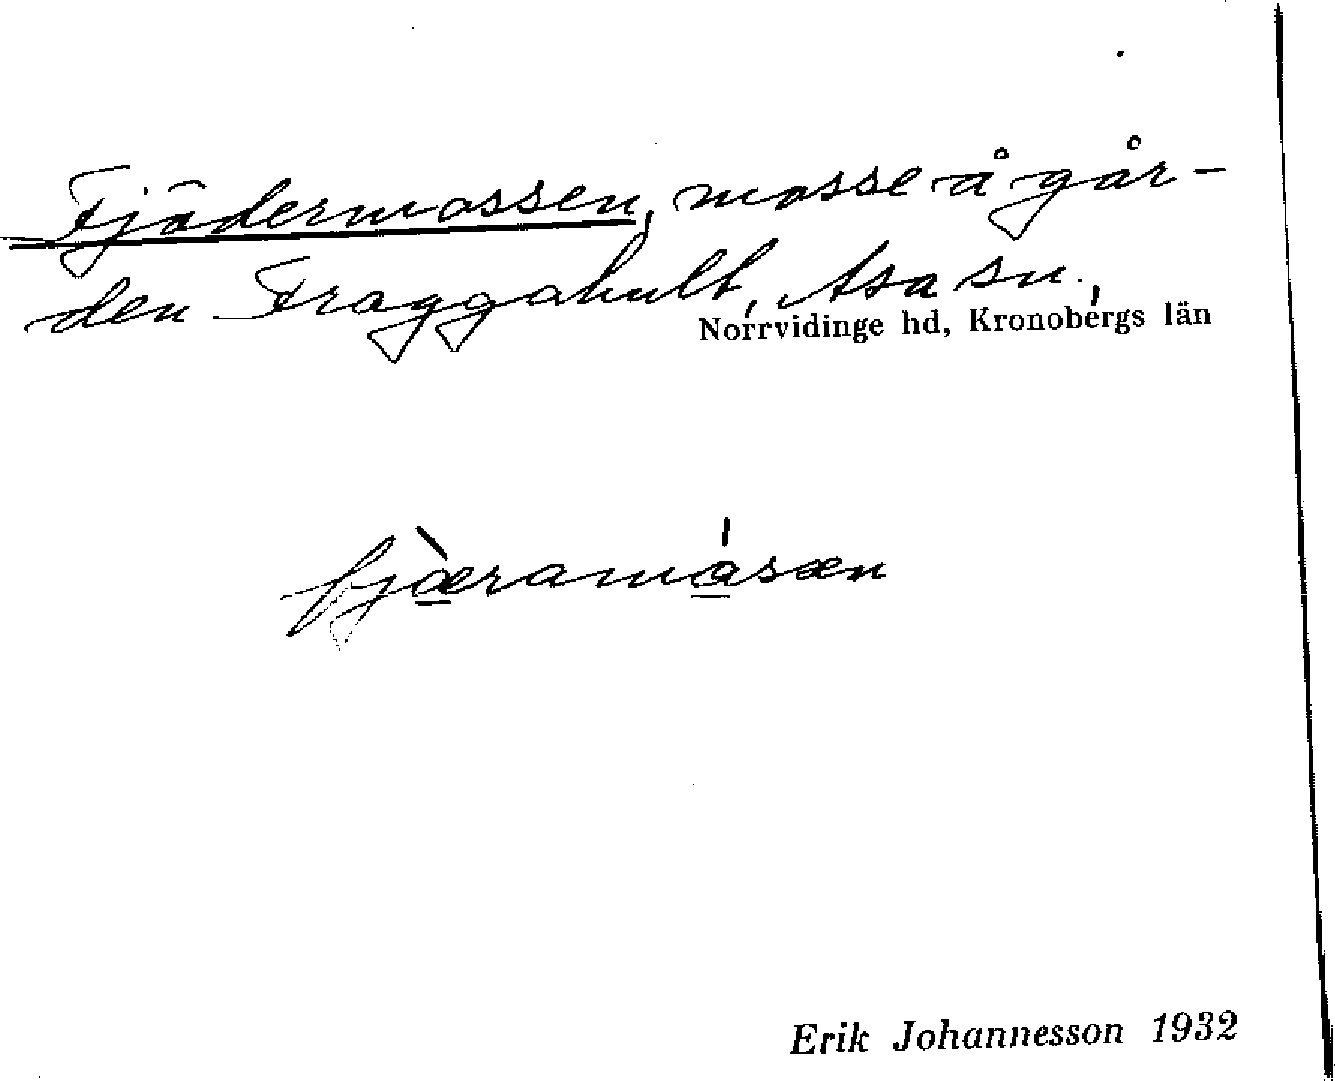 Fjädermossen, mosse å går-
den Fraggahult, Asa sn.,
Norrvidinge hd, Kronobergs län
fjæ̀ramásæn
Erik Johannesson 1932